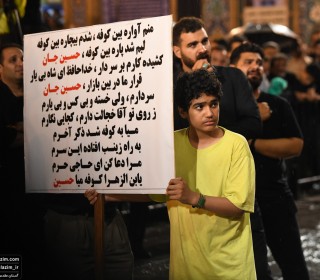 منم آواره بین کوفه ، شدم بیچاره بین کوفه
لبم شد پاره بین کوفه ، حسین جان
کشیده کارم بر سر دار ، خداحافظ ای شاه بی یار
قرار ما در بین بازار ، حسین جان
سردارم ، ولی خسته و بی کس و بی یارم
ز روی تو آقا خجالت دارم ، کجایی نگارم
میا به کوفه شد ذکر آخرم
به راه زینب افتاده این سرم
مرا دعا کن ای حاجی حرم
یابن الزهرا کوفه میا حسین